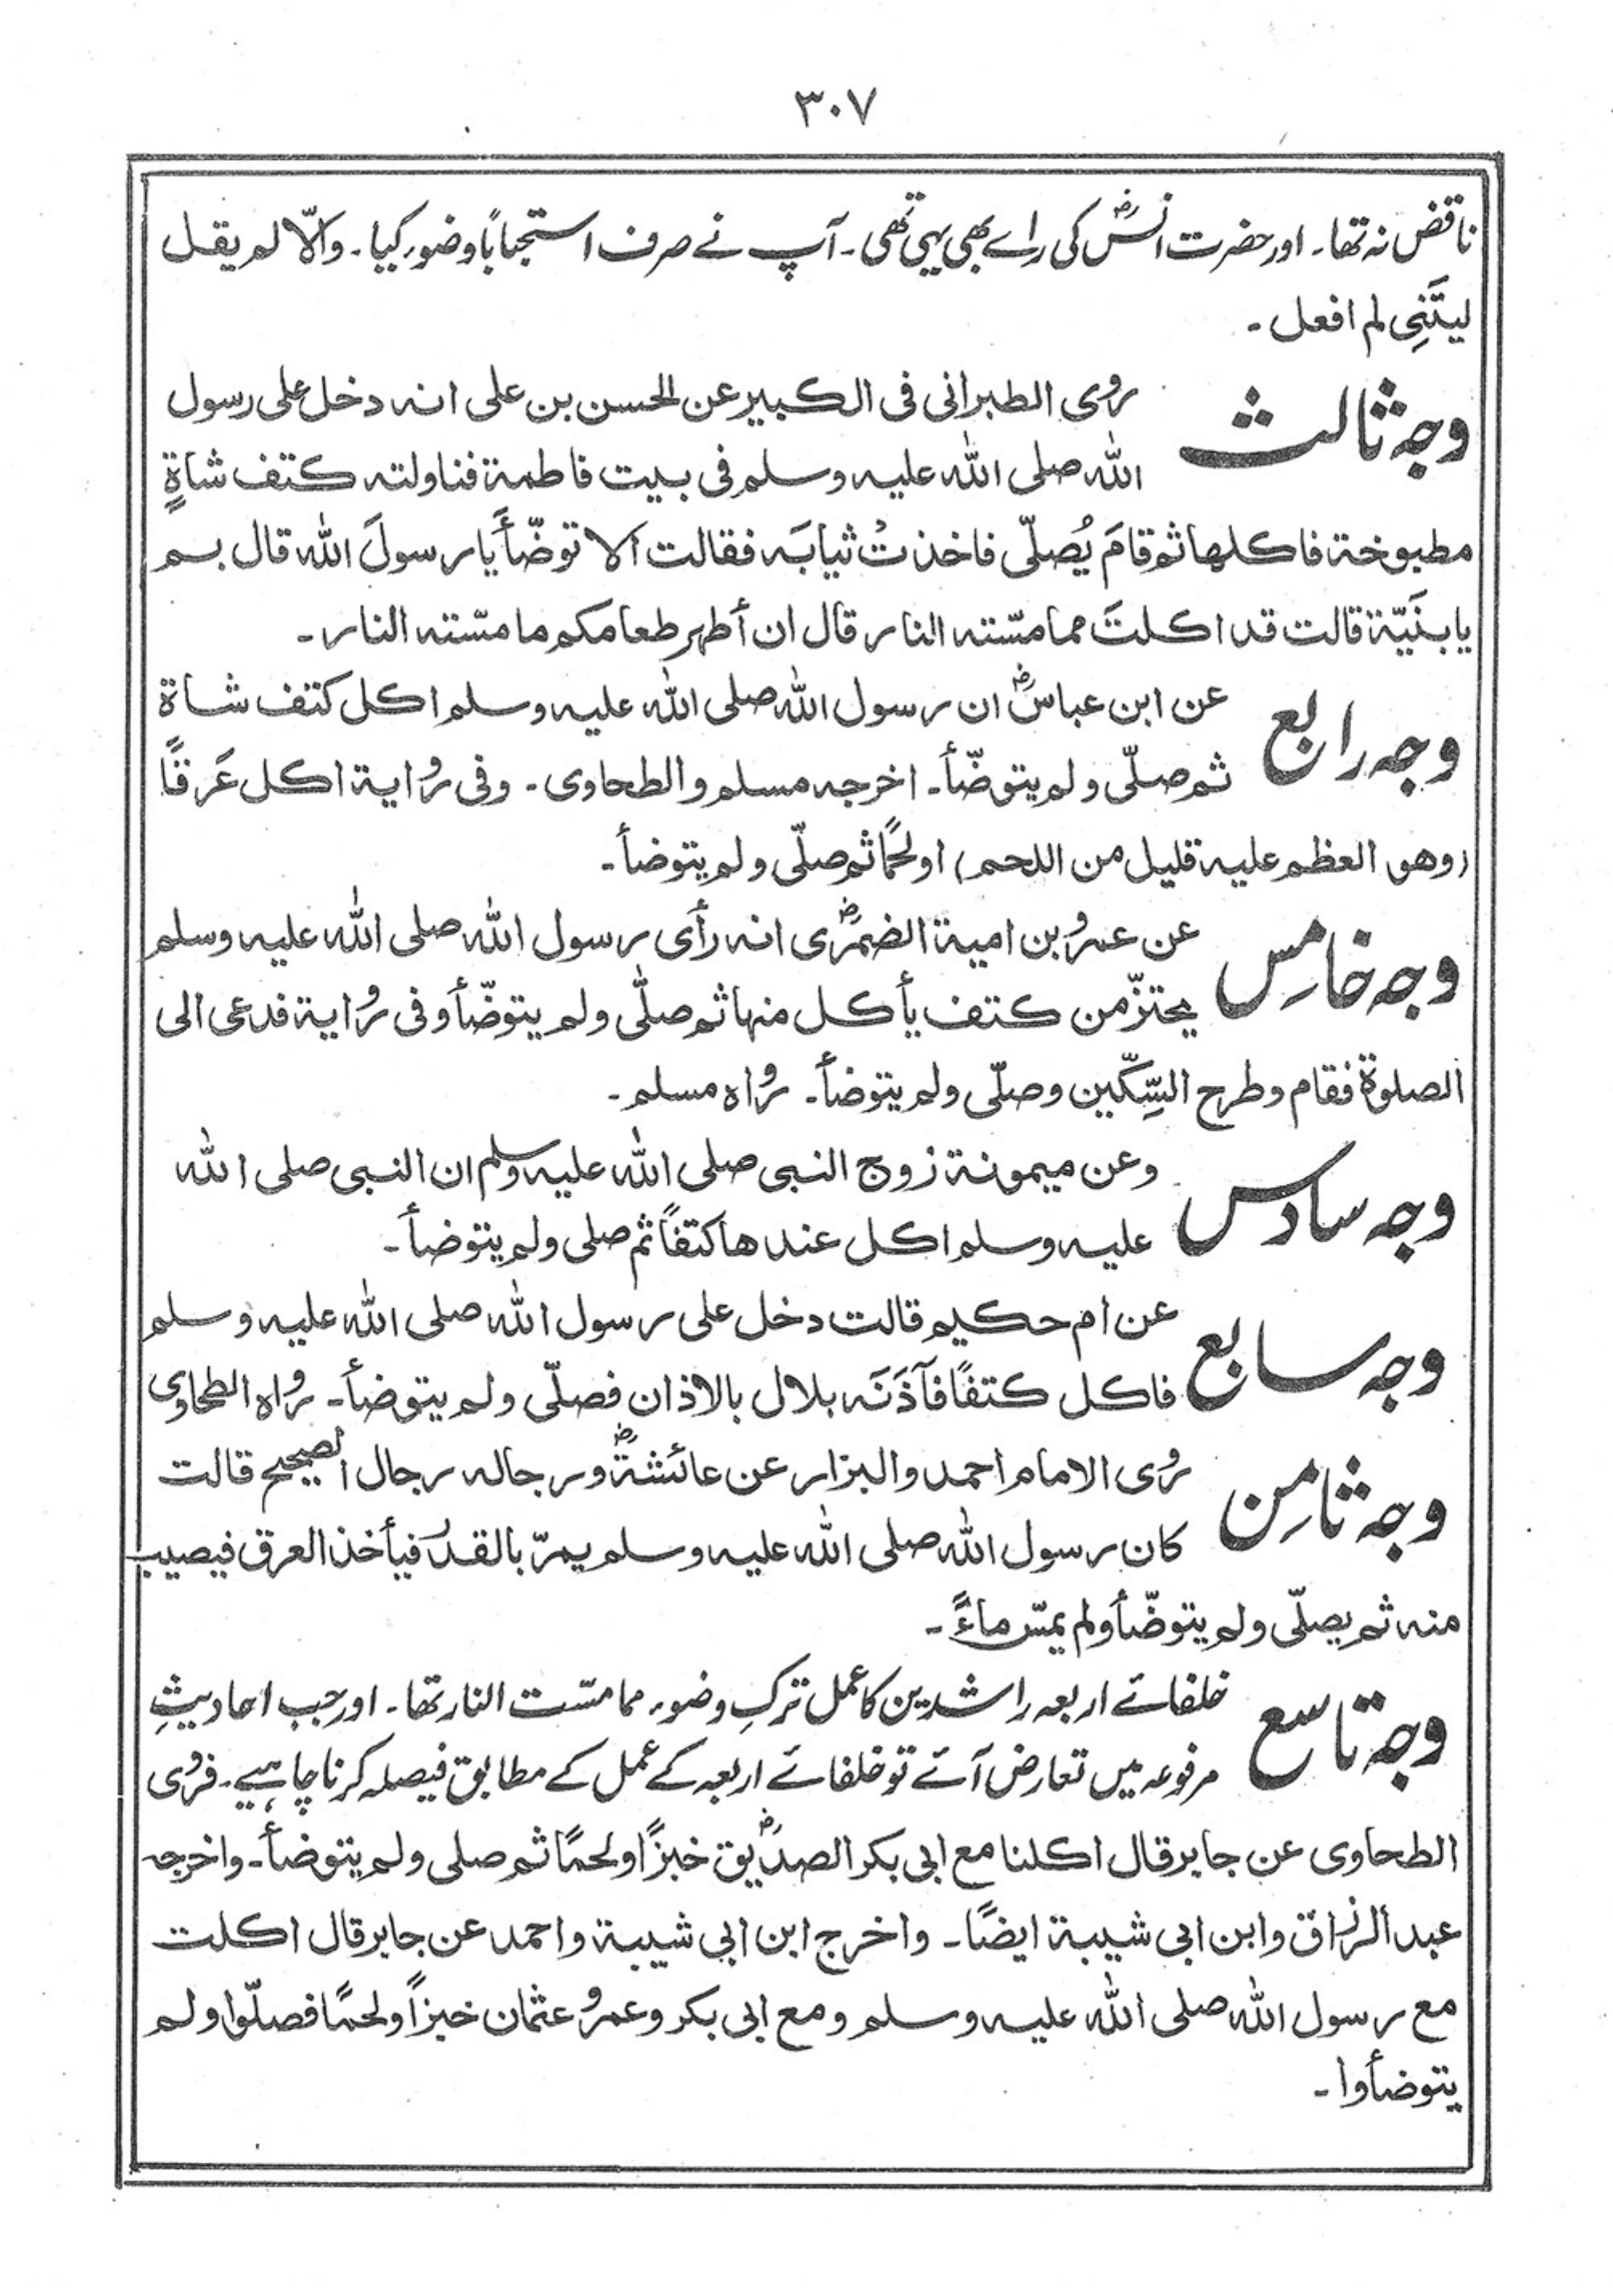 ۳۰۷
ناقض نہ تھا۔ اور حضرت انسؓ کی رائے بھی یہی تھی۔ آپ نے صرف استحباباً وضور کیا۔ والّا لم یقل
لیتَنِی لم افعل۔
وجہ ثالث روی الطبرانی فی الکبیر عن الحسن بن علی انہ دخل علی رسول
اللہ صلی اللہ علیہ وسلم فی بیت فاطمۃ فناولتہ کتف شاۃٍ
مطبوخۃ فاکلھا ثم قامَ یُصلّی فاخذتُ ثیابَہ فقالت ألا توضّأَ یا رسولَ اللہ قال بسم
یا بنَیّۃ قالت قد اکلتَ مما مسّتہ النار قال ان أطہر طعامکم ما مسّتہ النار۔
وجہ رابع عن ابن عباسؓ ان رسول اللہ صلی اللہ علیہ وسلم اکل کتف شاۃ
ثم صلّی ولم یتوضّأ۔ اخرجہ مسلم والطحاوی۔ وفی روایۃ اکل عَرقًا
(وھو العظم علیہ قلیل من اللحم) او لحمًا ثم صلّی ولم یتوضأ۔
وجہ خامِس عن عمرو بن امیۃ الضمریؓ انہ رأی رسول اللہ صلی اللہ علیہ وسلم
یحتزّ من کتف یأکل منھا ثم صلّی ولم یتوضّأ وفی روایۃ فدعی الی
الصلوۃ فقام وطرح السِّکّین وصلّی ولم یتوضأ۔ رواہ مسلم۔
وجہ سادس وعن میمونۃ زوج النبی صلی اللہ علیہ وسلم ان النبی صلی اللہ
علیہ وسلم اکل عندھا کتفاً ثم صلی ولم یتوضأ۔
وجہ سابع عن ام حکیم قالت دخل علی رسول اللہ صلی اللہ علیہ وسلم
فاکل کتفًا فآذَنَہ بلال بالاذان فصلّی ولم یتوضأ۔ رواہ الطحاوی
وجہ ثامِن روی الامام احمد والبزار عن عائشۃؓ ورجالہ رجال الصحیح قالت
کان رسول اللہ صلی اللہ علیہ وسلم یمرّ بالقدر فیأخذ العرق فیصیب
منہ ثم یصلّی ولم یتوضّأ ولم یمسّ ماءً۔
وجہ تاسع خلفائے اربعہ راشدین کا عمل ترکِ وضوء مما مسّت النار تھا۔ اور جب احادیثِ
مرفوعہ میں تعارض آئے تو خلفائے اربعہ کے عمل کے مطابق فیصلہ کرنا چاہیے۔ فروی
الطحاوی عن جابر قال اکلنا مع ابی بکر الصدیقؓ خبزًا و لحمًا ثم صلی ولم یتوضأ۔ واخرجہ
عبد الرزاق وابن ابی شیبۃ ایضًا۔ واخرج ابن ابی شیبۃ واحمد عن جابر قال اکلت
مع رسول اللہ صلی اللہ علیہ وسلم ومع ابی بکر وعمر و عثمان خبزاً ولحمًا فصلّوا ولم
یتوضأوا۔